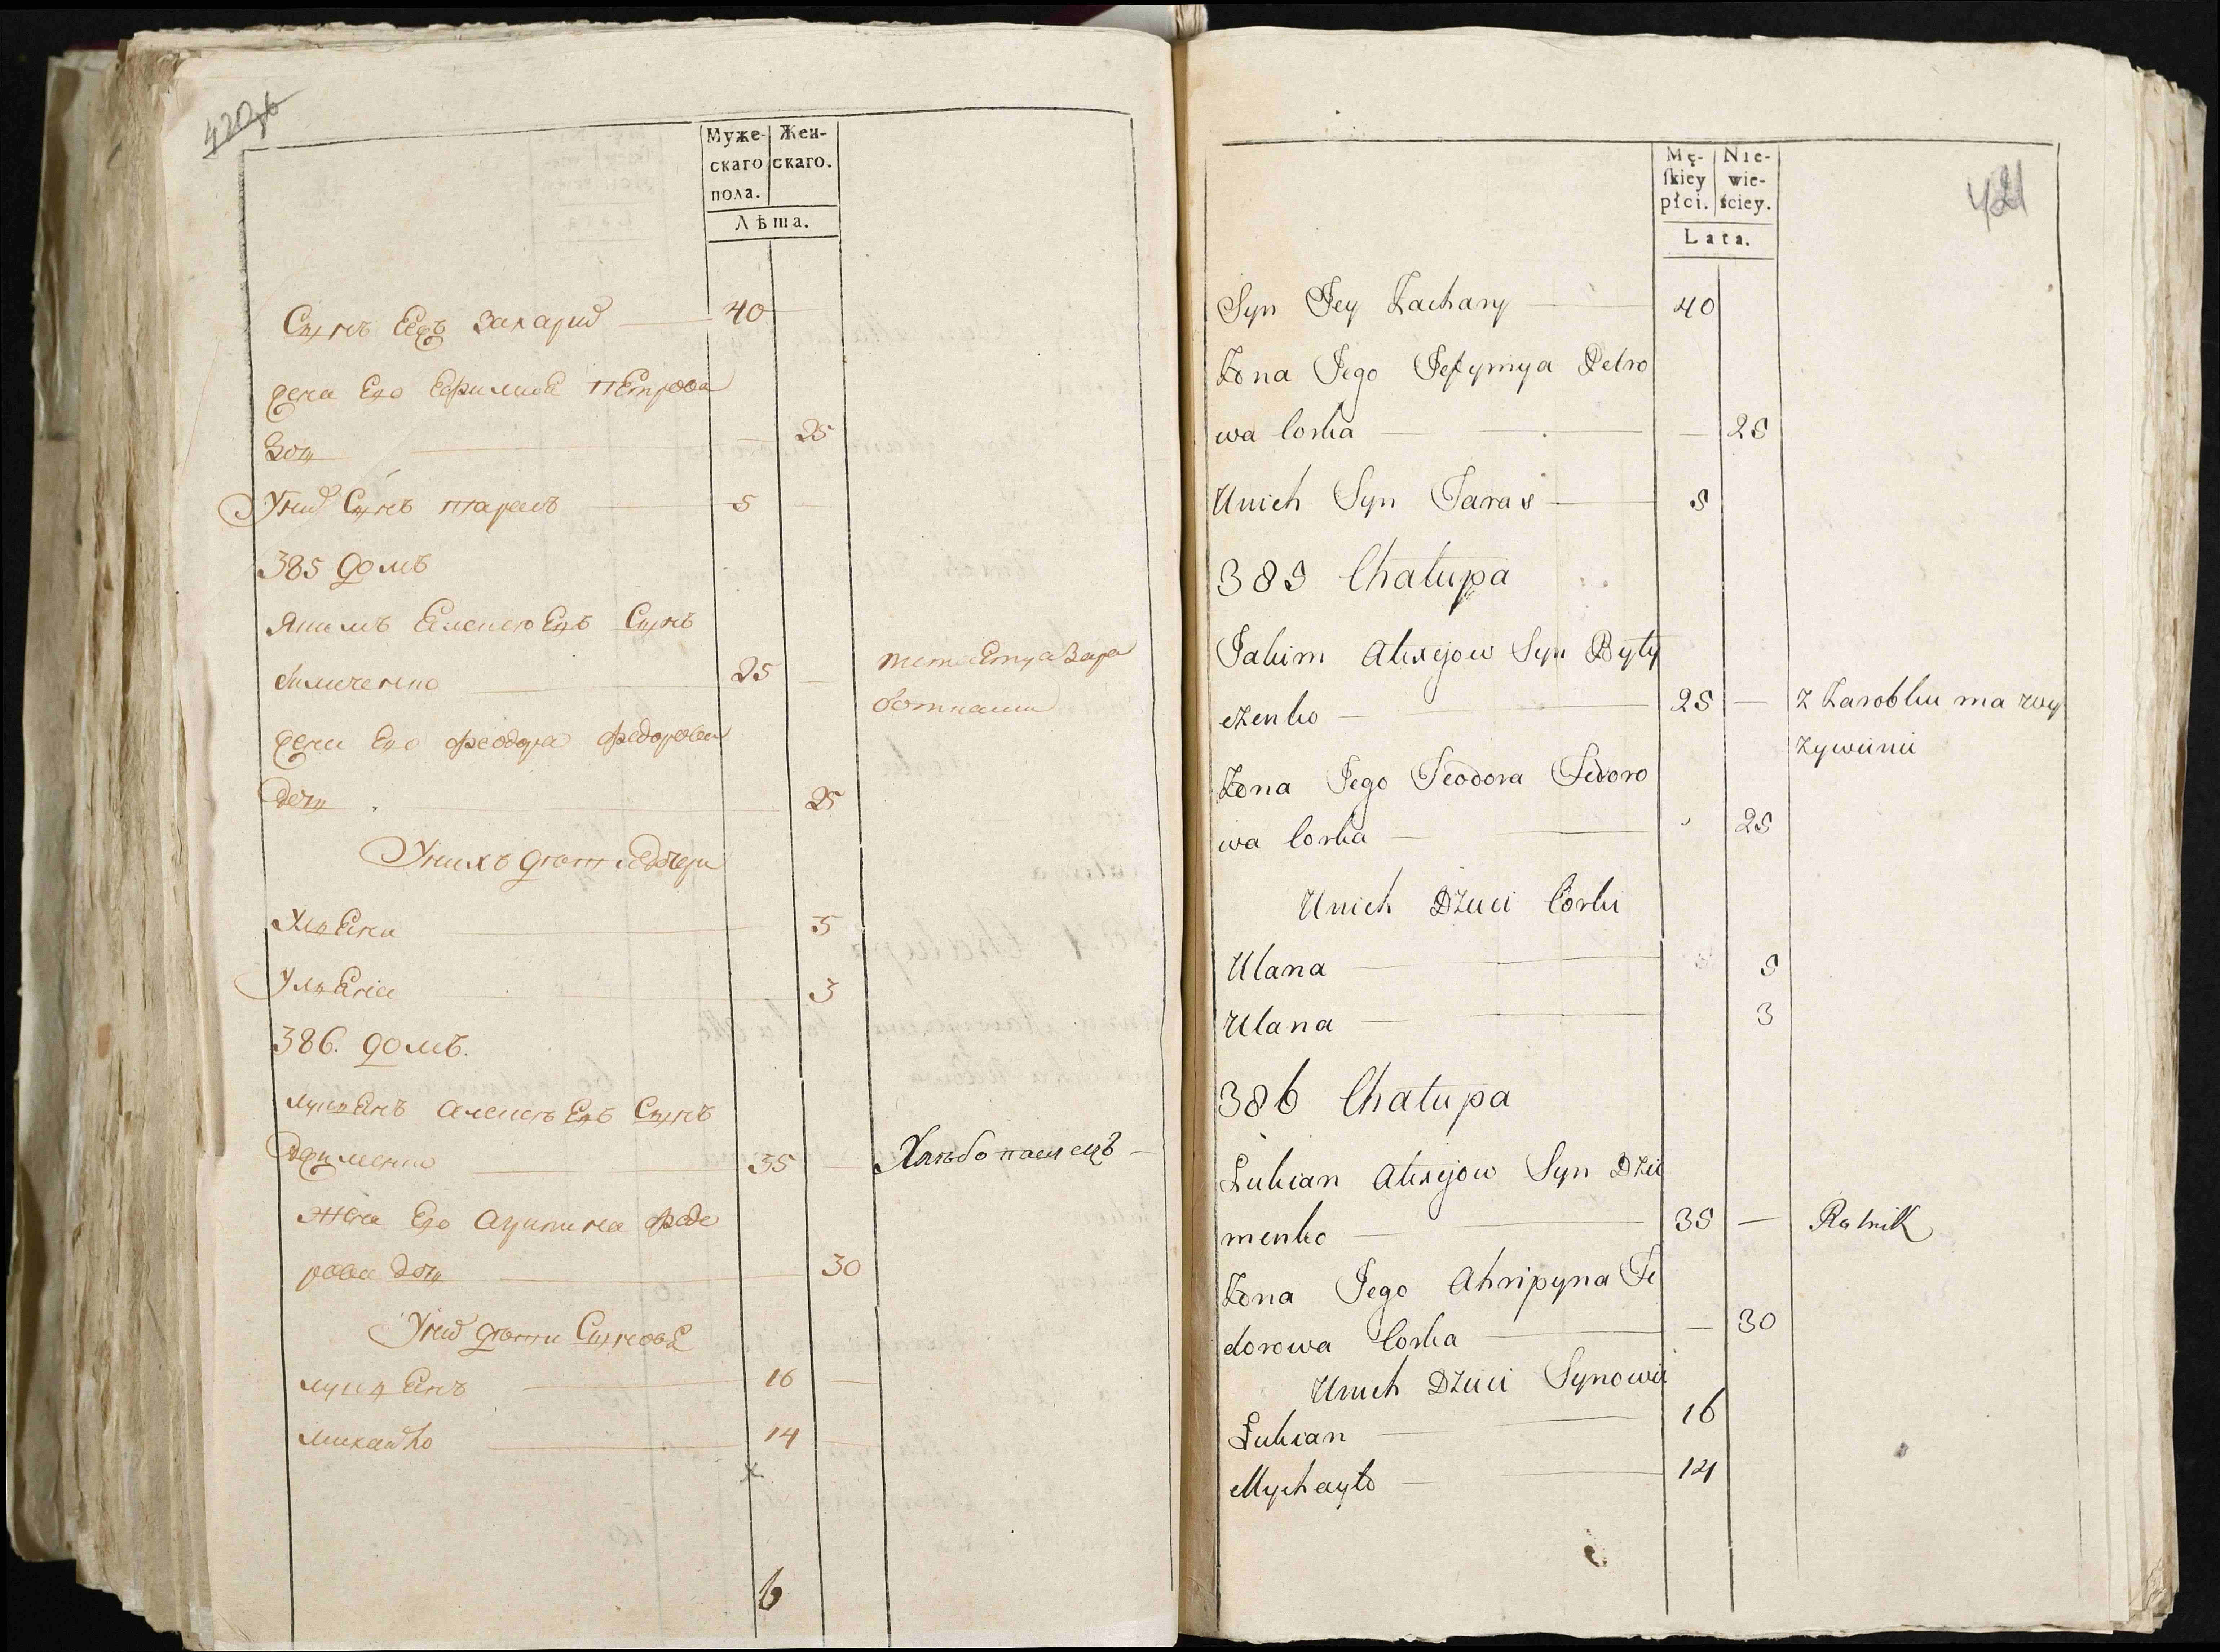 Муже- Жен-
скаго скаго.
пола.
Лѣта.
Сынъ Еѣ Захарий 40
жена Его Ефимиа Петрова
дочь 25
У ний Сынъ тарасъ 5
385 домъ
Якимъ Алексеювъ Сынъ
25
жена Его феодора федорова
дочь 25
У нихъ дѣти дочери
5
Ульяна 3
386. домъ.
лукьянъ алексеевъ Сынъ
35 Хлѣбопашецъ
жена Его агрипина федо
рова дочь 30
У ний дѣти Сынове
лукьянъ 16
михайло 14
x
6
421
Mę- Nie-
skiey wie-
płci. ściey.
Lata.
Syn Jey Zachary 40
Żona Jego Jefymya Petro
wa Corka 25
Unich Syn Taras 5
385 Chałupa
Jakim Alexejow Syn Byty
czenko 25 z Zarobku ma wy
żywienie
Żona Jego Teodora Fedoro
wa Corka 25
Unich Dzieci Corki
Ulana 5
Ulana 3
386 Chałupa
Lukian Alexejow Syn Dzie
menko 35 Rolnik
Żona Jego Ahripyna Fe
dorowa Corka 30
Unich Dzieci Synowie
Lukian 16
Mychayło 14